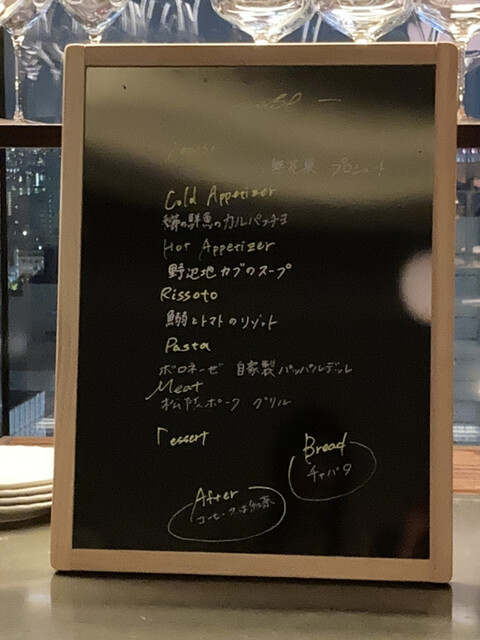 無花果 プロシュート
Cold Appetizer
鮮魚のカルパッチョ
Hot Appetizer
野辺地カブのスープ
Rissoto
鰯とトマトのリゾット
Pasta
ボロネーゼ 自家製パッパルデッレ
Meat
ポーク グリル
Dessert
Bread
チャバタ
After
コーヒー or お紅茶